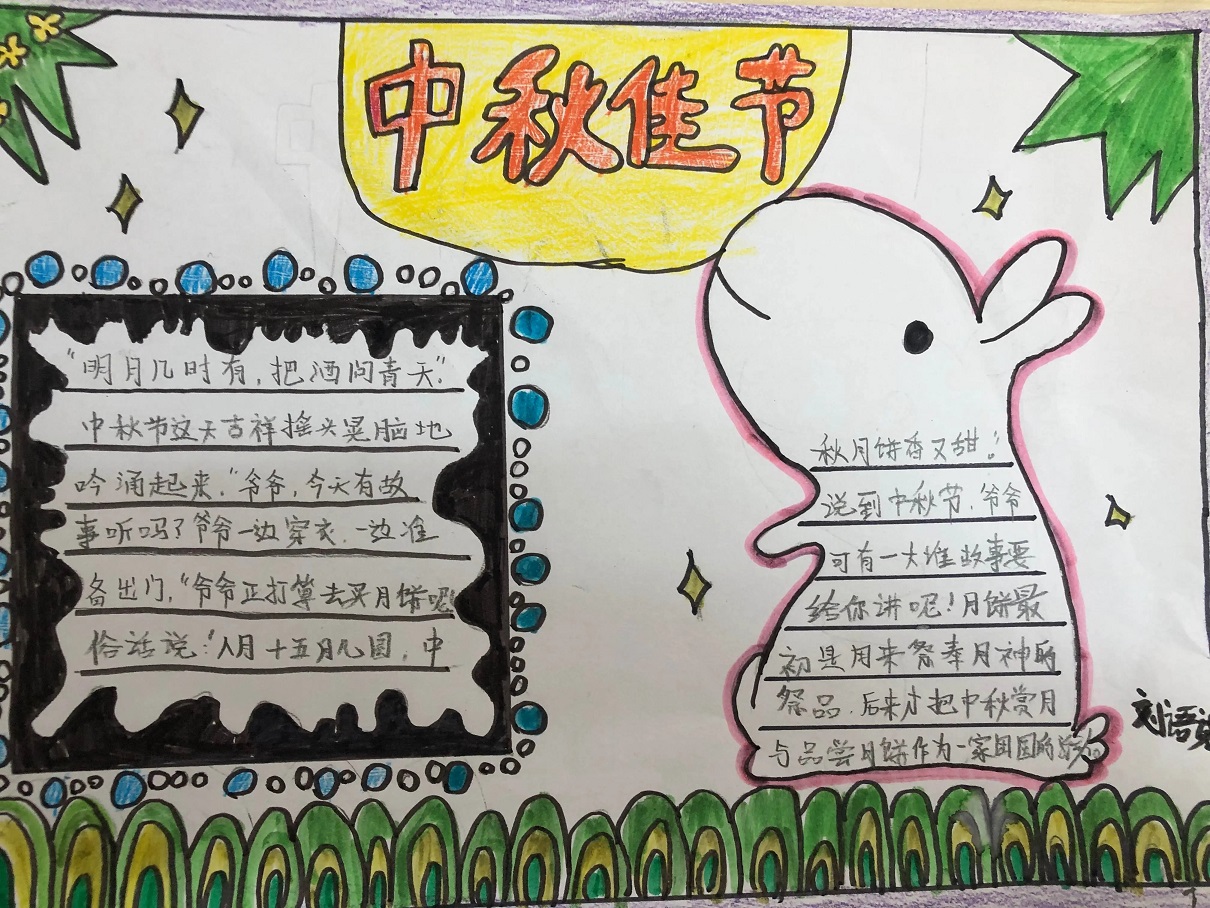 中秋佳节
“明月几时有，把洒问青天”.
中秋节这天吉祥摇头晃脑地
吟涌起来.“爷爷，今天有故
事听吗了爷爷一边穿衣.一边准
备出门，“爷爷正打算去买月饼呢
俗话说：八月十五月儿圆，中
秋月饼香又甜.”
说到中秋节.爷爷
可有一大堆故事要
给你讲呢！月饼最
初是用来祭奉月神的
祭品.后来才把中秋赏月
与品尝月饼作为一家团圆的
刘语